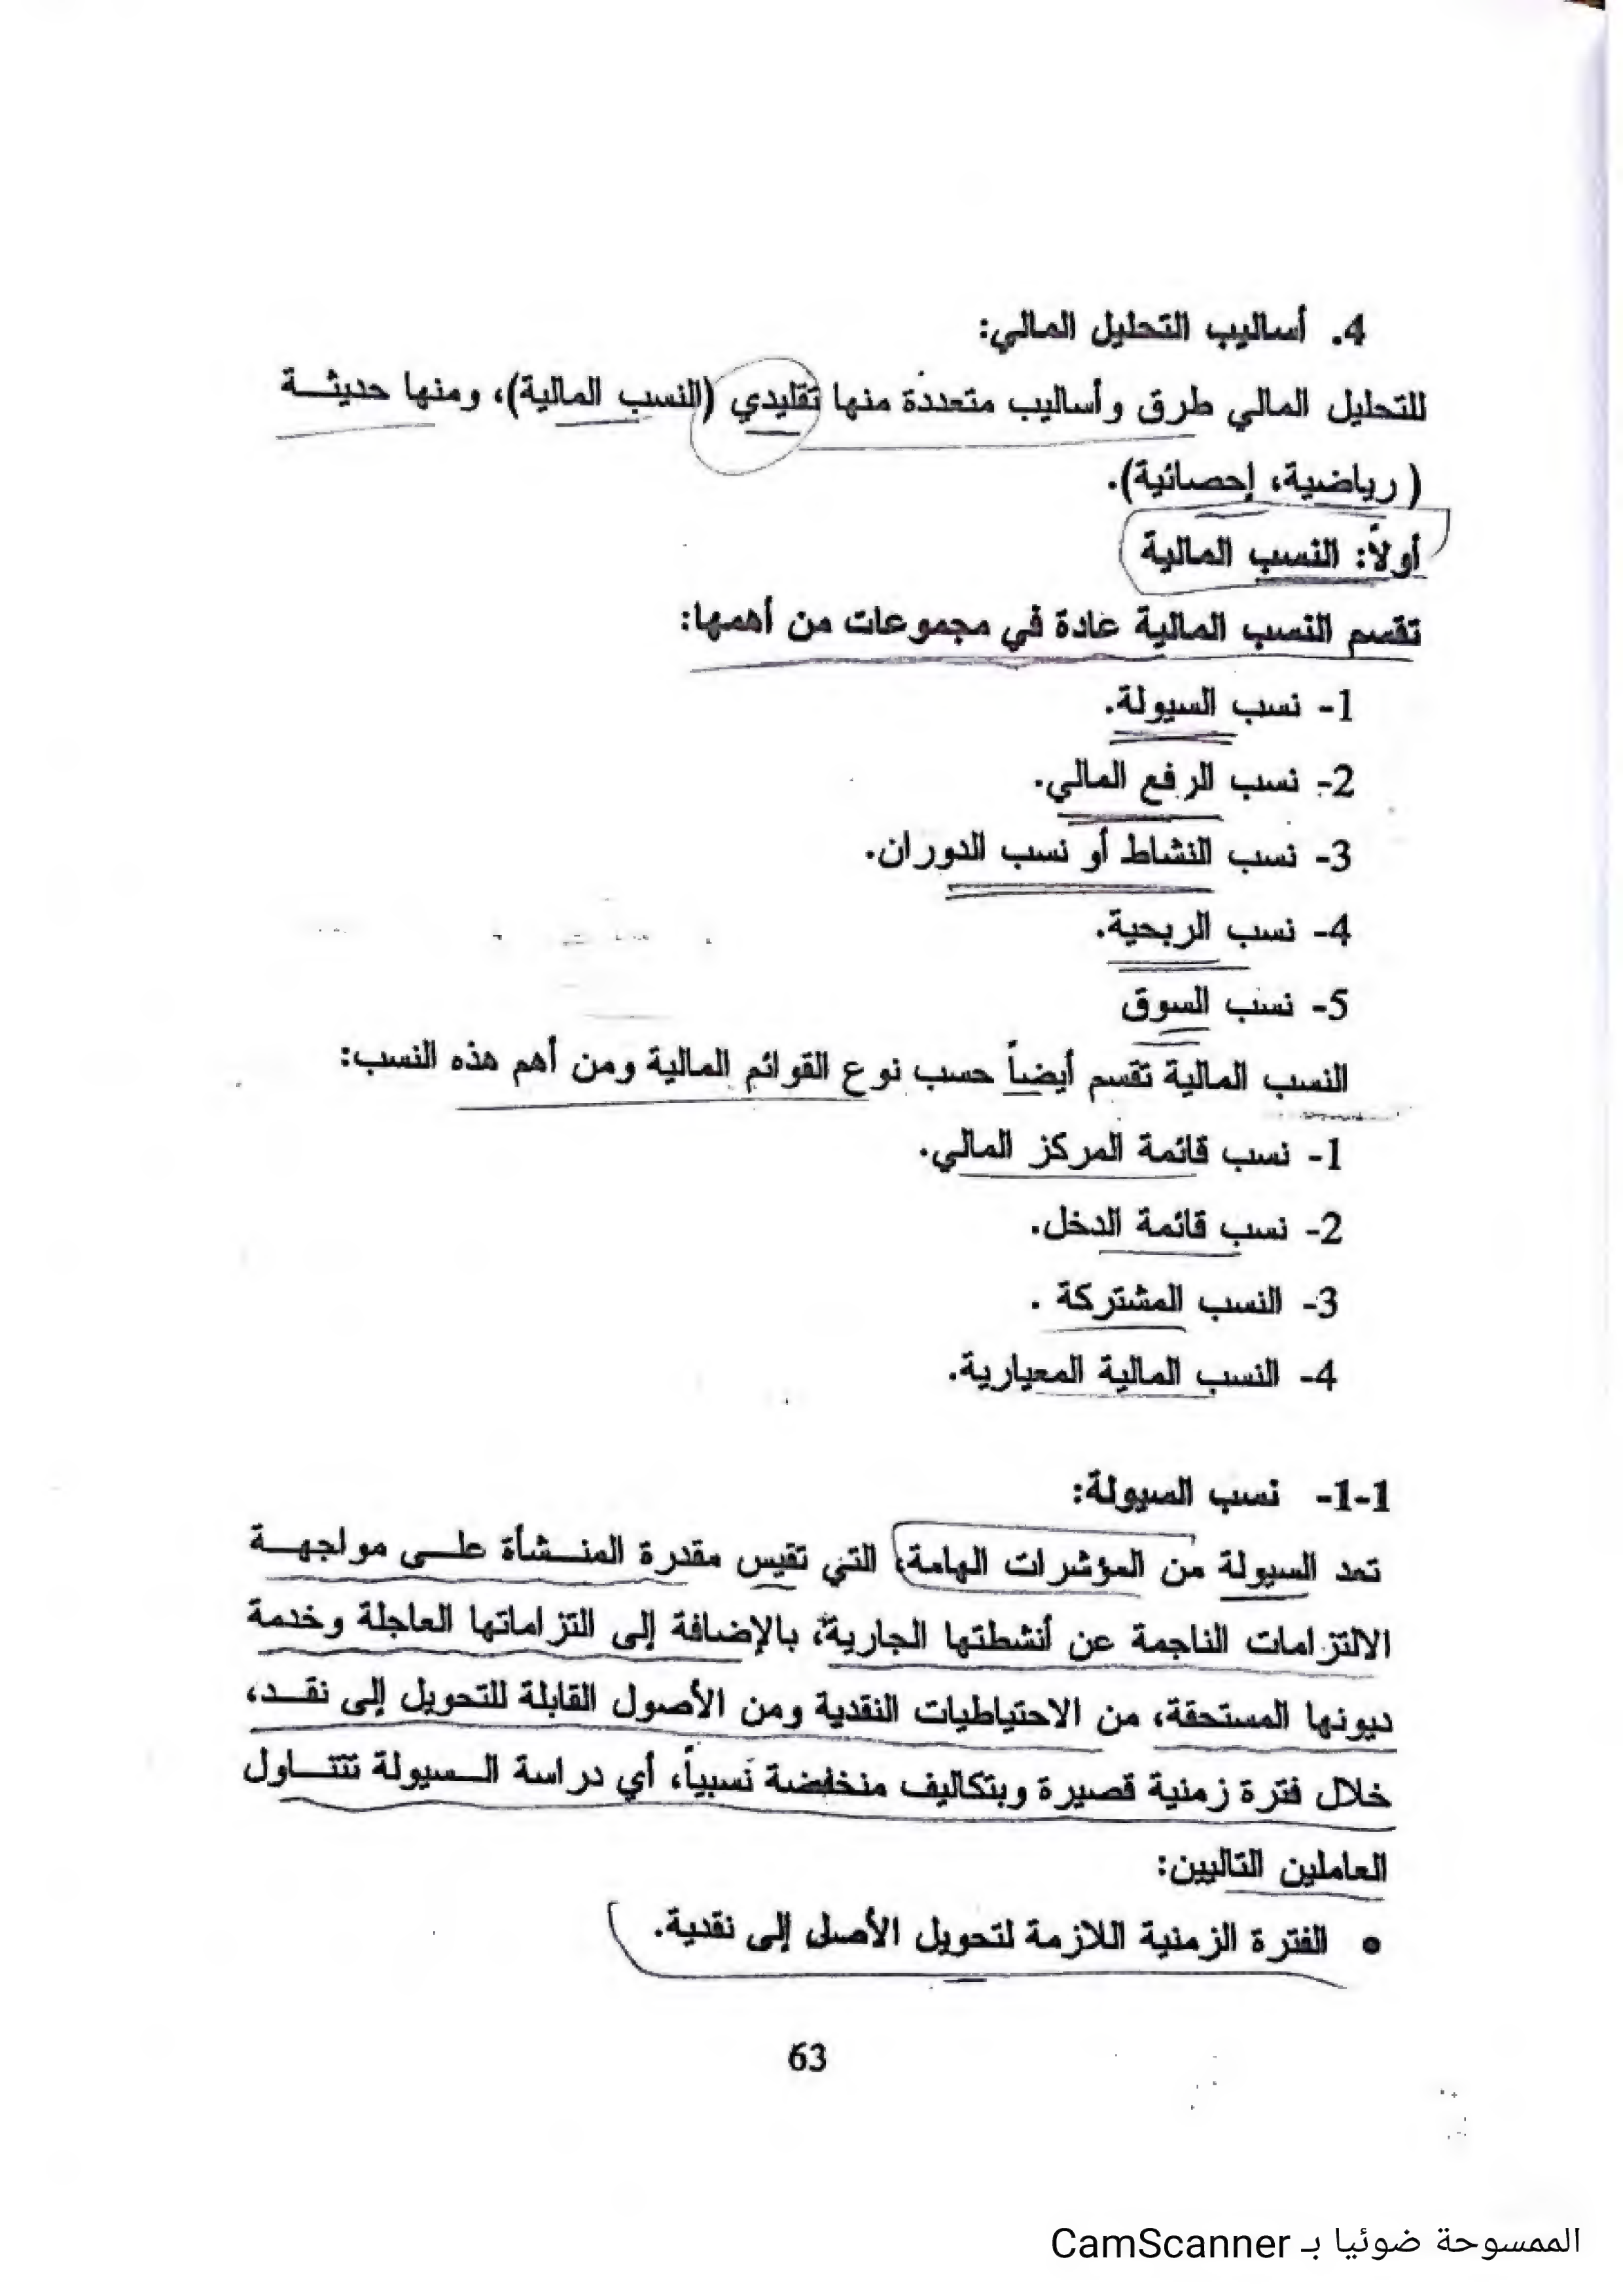 4. أساليب التحليل المالي:
للتحليل المالي طرق وأساليب متعددة منها تقليدي (النسب المالية)، ومنها حديثة
( رياضية، إحصائية).
أولاً: النسب المالية
تقسم النسب المالية عادة في مجموعات من أهمها:
1- نسب السيولة.
2- نسب الرفع المالي.
3- نسب النشاط أو نسب الدوران.
4- نسب الربحية.
5- نسب السوق
النسب المالية تقسم أيضاً حسب نوع القوائم المالية ومن أهم هذه النسب:
1- نسب قائمة المركز المالي.
2- نسب قائمة الدخل.
3- النسب المشتركة .
4- النسب المالية المعيارية.
1-1- نسب السيولة:
تعد السيولة من المؤشرات الهامة، التي تقيس مقدرة المنشأة على مواجهة
الالتزامات الناجمة عن أنشطتها الجارية، بالإضافة إلى التزاماتها العاجلة وخدمة
ديونها المستحقة، من الاحتياطيات النقدية ومن الأصول القابلة للتحويل إلى نقد،
خلال فترة زمنية قصيرة وبتكاليف منخفضة نسبياً، أي دراسة السيولة تتناول
العاملين التاليين:
• الفترة الزمنية اللازمة لتحويل الأصل إلى نقدية.
63
الممسوحة ضوئيا بـ CamScanner